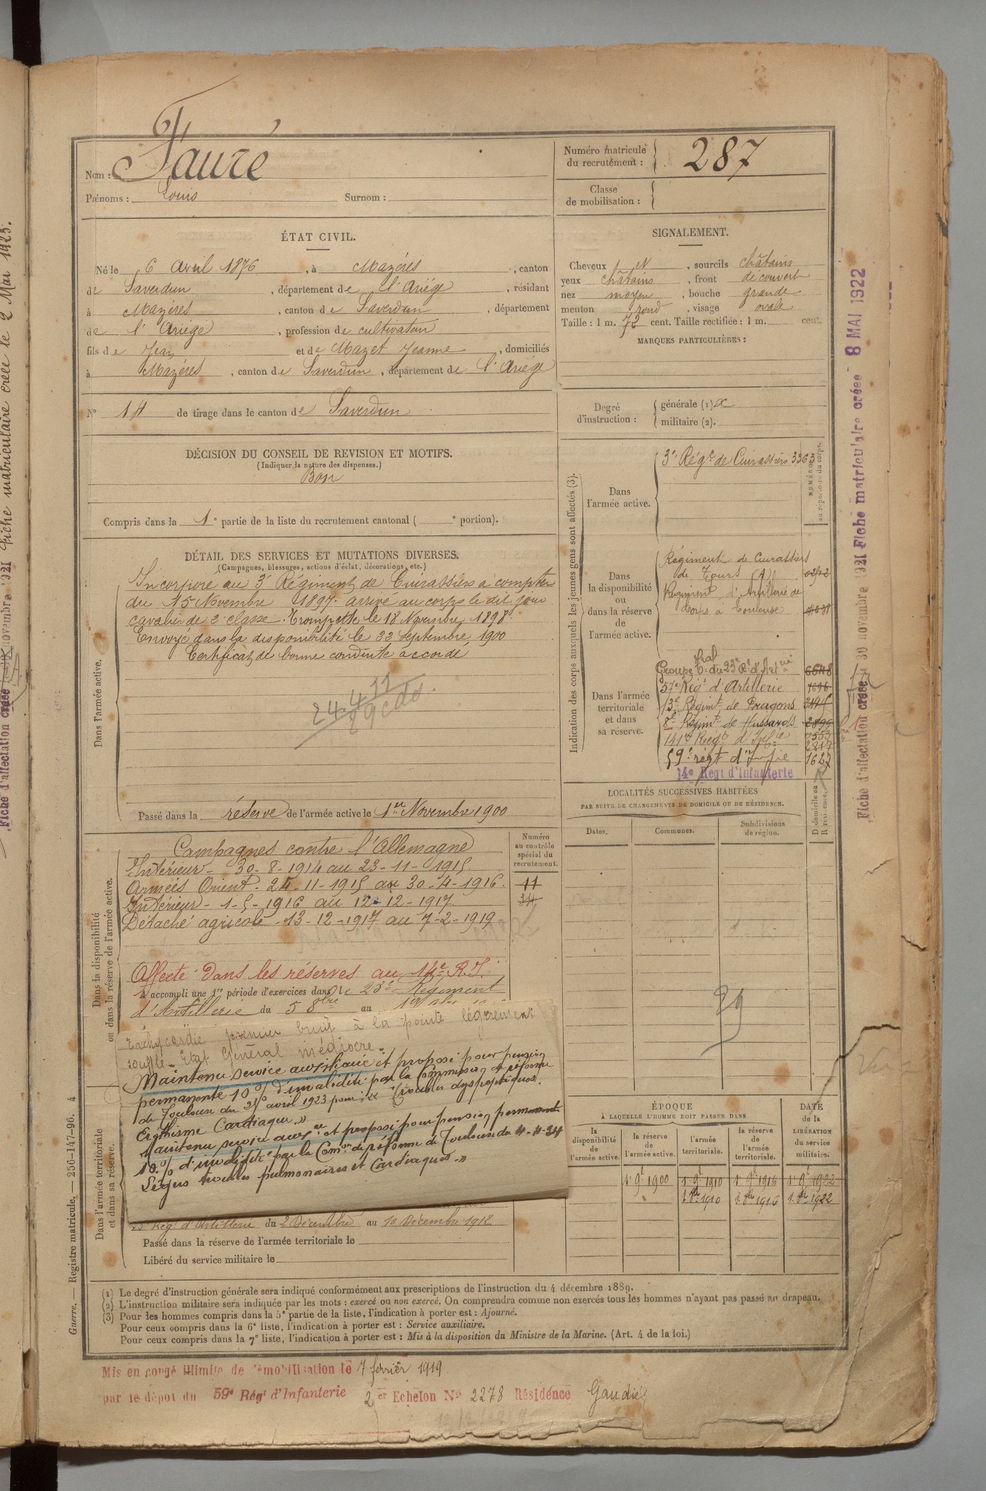 Nom : Fauré
Prénoms : Louis Surnom :
Numéro matricule du recrutement : 287
Classe de mobilisation :
ÉTAT CIVIL.
Né le 6 Avril 1876, à Mazères, canton
de Saverdun, département de l'Ariège, résidant
à Mazères, canton de Saverdun, département
de l'Ariège, profession de cultivateur
fils de Jean et de Mazet Jeanne, domiciliés
à Mazères, canton de Saverdun, département de l'Ariège
N° 14 de tirage dans le canton de Saverdun
SIGNALEMENT.
Cheveux et, sourcils châtains
yeux châtains, front découvert
nez moyen, bouche grande
menton rond, visage ovale
Taille : 1 m. 73 cent. Taille rectifiée : 1 m. cent.
MARQUES PARTICULIÈRES :
Degré d'instruction : générale (1)
militaire (2).
DÉCISION DU CONSEIL DE REVISION ET MOTIFS.
(Indiquer la nature des dispenses.)
Bon
Compris dans la 1e partie de la liste du recrutement cantonal ( e portion).
DÉTAIL DES SERVICES ET MUTATIONS DIVERSES.
(Campagnes, blessures, actions d'éclat, décorations, etc.)
Dans l'armée active.
Incorporé au 3e Régiment de Cuirassiers à compter
du 15 Novembre 1897. arrivé au corps le dit jour
cavalier de 2e classe. Trompette le 18 Novembre 1898
Envoyé dans la disponibilité le 22 Septembre 1900
Certificat de bonne conduite accordé
Passé dans la réserve de l'armée active le 1er Novembre 1900
Indication des corps auxquels les jeunes gens sont affectés (3).
Dans l'armée active.
3e Régt de Cuirassiers 3363
Dans la disponibilité ou dans la réserve de l'armée active.
Régiment de Cuirassiers
de Tours (A)
Régiment d'Artillerie de
Corps à Toulouse
Dans l'armée territoriale et dans sa réserve.
57e Régt d'Artillerie
13e Régimt de Dragons
Régimt de Hussards
141e Régt d'Inf
59e régt d'Inf 1627
14e Régt d'Infanterie
LOCALITÉS SUCCESSIVES HABITÉES
PAR SUITE DE CHANGEMENTS DE DOMICILE OU DE RÉSIDENCE.
Dates. Communes. Subdivisions de région. D domicile ou R résidence.
Dans la disponibilité ou dans la réserve de l'armée active.
Numéro au contrôle spécial du recrutement.
Campagnes contre l'Allemagne
Intérieur - 30-8-1914 au 23-11-1915
Armées Orient - 24-11-1915 au 30-4-1916
Intérieur - 1-5-1916 au 12-12-1917
Détaché agricole - 13-12-1917 au 7-2-1919
Affecté dans les réserves au 14e R.I.
a accompli une 1re période d'exercices dans le 23e Régiment
d'Artillerie du 5 8bre au
Tachycardie premier bruit à la pointe légèrement
soufflé. Etat Général médiocre.
Maintenu service auxiliaire et proposé pour pension
permanente 10 % d'invalidité par la Commission de réforme
de Toulouse du 25 avril 1923 pour Troubles dyspeptiques.
Eréthisme Cardiaque.
Maintenu service auxre et proposé pour pension permanente
10 % d'invalidité par la Comon de réforme de Toulouse du 4-4-24
Légers troubles pulmonaires et Cardiaques.
Dans l'armée territoriale et dans sa réserve.
Régt d'Artillerie du 2 Décembre au 10 Décembre 1912
Passé dans la réserve de l'armée territoriale le
Libéré du service militaire le
ÉPOQUE
À LAQUELLE L'HOMME DOIT PASSER DANS
la disponibilité de l'armée active. la réserve de l'armée active. l'armée territoriale. la réserve de l'armée territoriale.
DATE de la LIBÉRATION du service militaire.
1 9e 1900 1 9e 1910 1 9e 1916 1 9e 1922
1 8bre 1910 1 8bre 1916 1 8bre 1922
(1) Le degré d'instruction générale sera indiqué conformément aux prescriptions de l'instruction du 4 décembre 1889.
(2) L'instruction militaire sera indiquée par les mots : exercé ou non exercé. On comprendra comme non exercés tous les hommes n'ayant pas passé au drapeau.
(3) Pour les hommes compris dans la 5e partie de la liste, l'indication à porter est : Ajourné.
Pour ceux compris dans la 6e liste, l'indication à porter est : Service auxiliaire.
Pour ceux compris dans la 7e liste, l'indication à porter est : Mis à la disposition du Ministre de la Marine. (Art. 4 de la loi.)
Guerre. — Registre matricule. — 256-147-96.
Mis en congé illimité de démobilisation le 7 février 1919
par le dépôt du 59e Régt d'Infanterie 2er Echelon No 2278 Résidence Gaudiès
Fiche d'affectation créée le 30 novembre 1921 Fiche matriculaire créée 8 MAI 1922